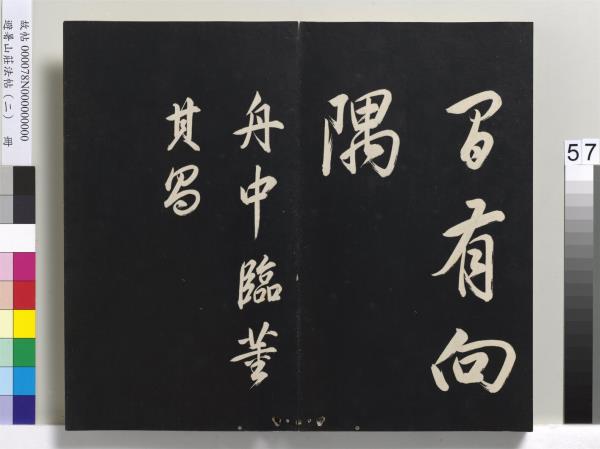 間有向
隅
舟中臨董
其昌
故帖 000078N000000000
避暑山莊法帖（二） 冊
57